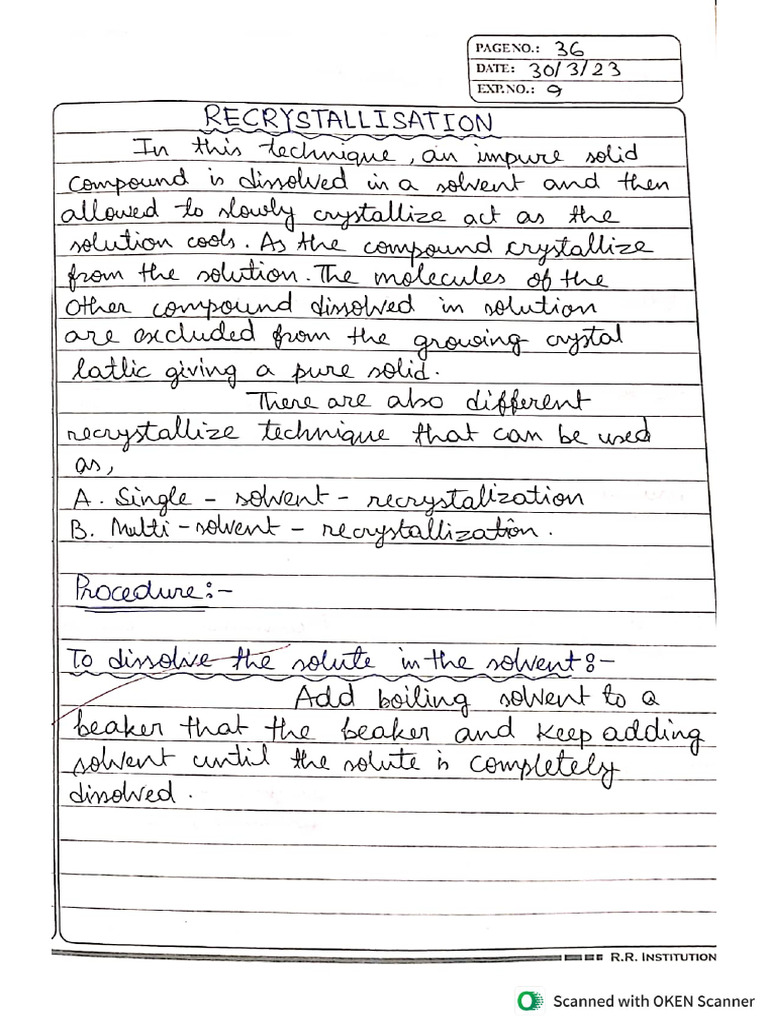 PAGE NO.: 36
DATE: 30/3/23
EXP.NO.: 9
RECRYSTALLISATION
In this technique, an impure solid
compound is dissolved in a solvent and then
allowed to slowly crystallize act as the
solution cools. As the compound crystallize
from the solution. The molecules of the
other compound dissolved in solution
are excluded from the growing crystal
latlic giving a pure solid.
There are also different
recrystallize technique that can be used
as,
A. Single - solvent - recrystalization
B. Multi - solvent - recrystallization.
Procedure:-
To dissolve the solute in the solvent:-
Add boiling solvent to a
beaker that the beaker and keep adding
solvent until the solute is completely
dissolved.
R.R. INSTITUTION
Scanned with OKEN Scanner